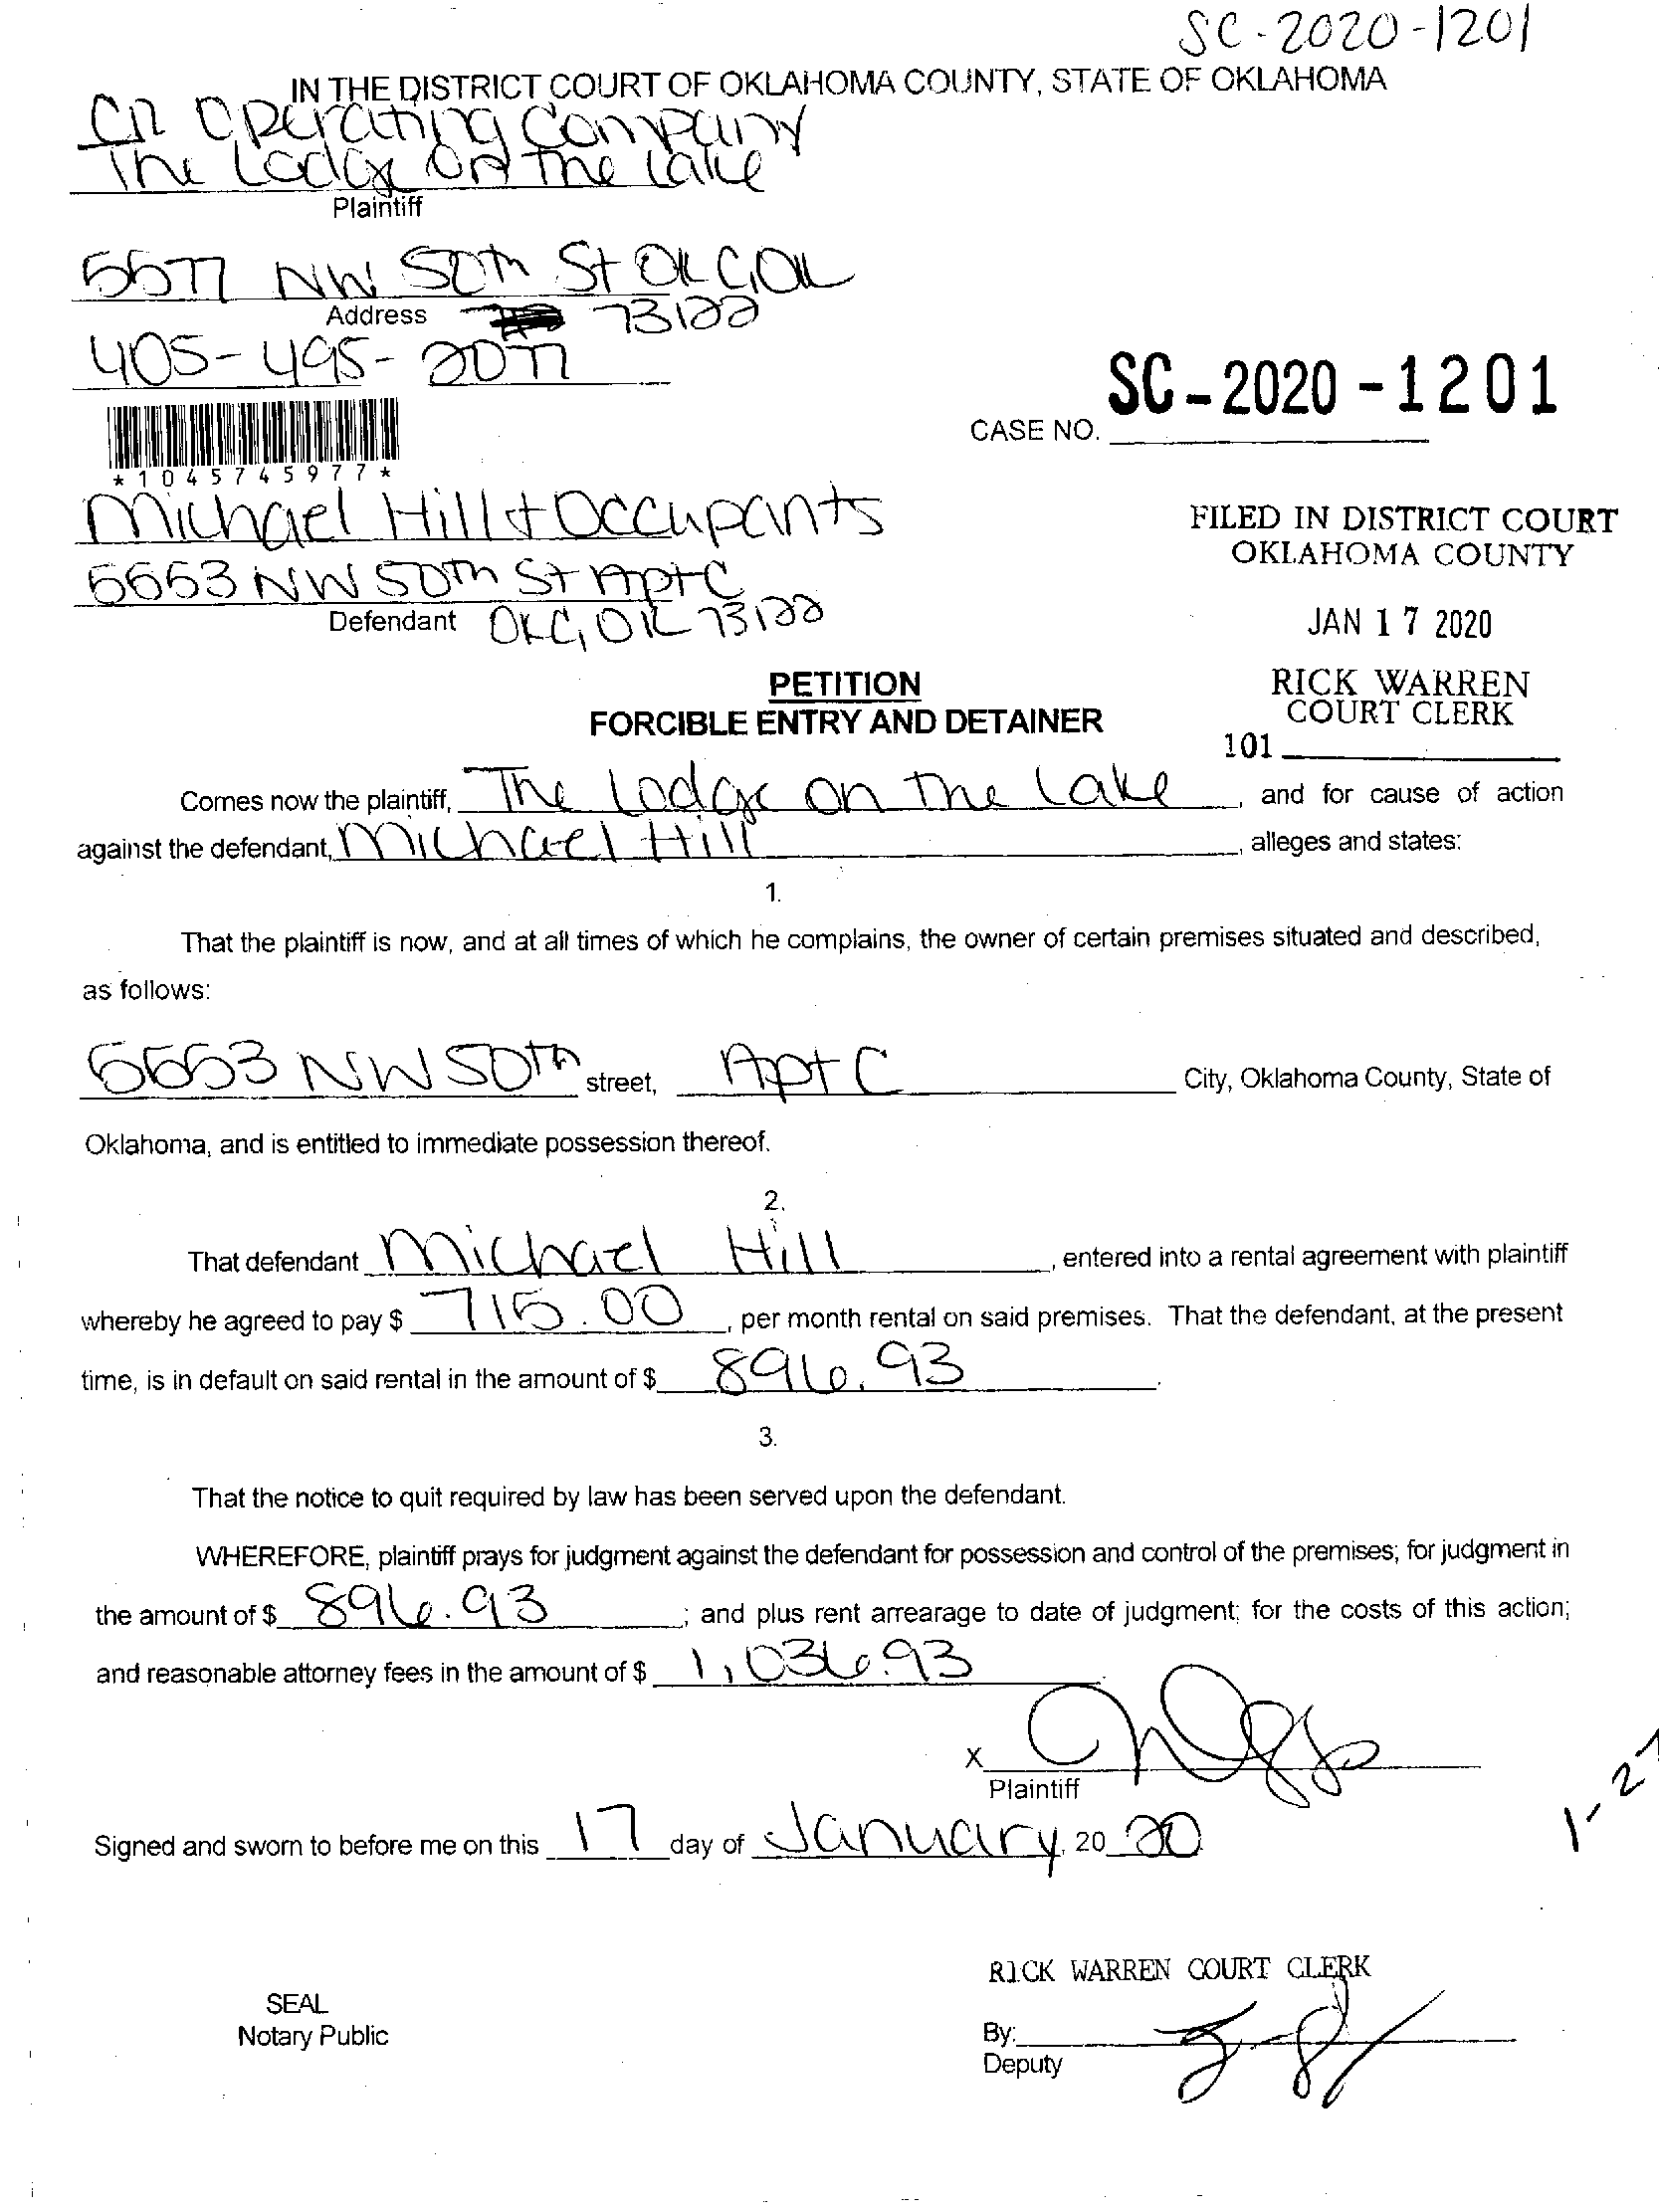 SC-2020-1201
IN THE DISTRICT COURT OF OKLAHOMA COUNTY, STATE OF OKLAHOMA
Operating Company
The Lodge On The Lake
Plaintiff
5577 NW 50th St OKC, OK
Address 73122
405-495-2077
SC-2020-1201
CASE NO.
*1045745977*
Michael Hill + Occupants
5553 NW 50th St Apt C
Defendant OKC, OK 73122
FILED IN DISTRICT COURT
OKLAHOMA COUNTY
JAN 17 2020
RICK WARREN
COURT CLERK
101
PETITION
FORCIBLE ENTRY AND DETAINER
Comes now the plaintiff, The Lodge on The Lake, and for cause of action
against the defendant, Michael Hill, alleges and states:
1.
That the plaintiff is now, and at all times of which he complains, the owner of certain premises situated and described,
as follows:
5553 NW 50th street, Apt C City, Oklahoma County, State of
Oklahoma, and is entitled to immediate possession thereof.
2.
That defendant Michael Hill, entered into a rental agreement with plaintiff
whereby he agreed to pay $ 715.00, per month rental on said premises. That the defendant, at the present
time, is in default on said rental in the amount of $ 896.93.
3.
That the notice to quit required by law has been served upon the defendant.
WHEREFORE, plaintiff prays for judgment against the defendant for possession and control of the premises; for judgment in
the amount of $ 896.93; and plus rent arrearage to date of judgment; for the costs of this action;
and reasonable attorney fees in the amount of $ 1,036.93
X
Plaintiff
1-27
Signed and sworn to before me on this 17 day of January, 20 20
RICK WARREN COURT CLERK
SEAL
Notary Public
By:
Deputy